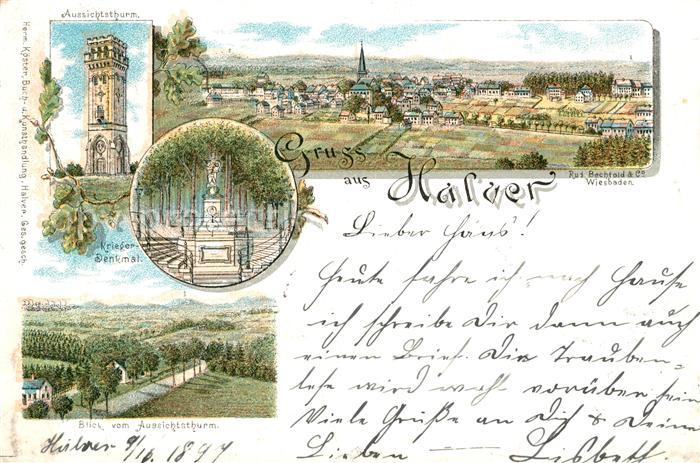 Aussichtsthurm.
Herm. Köster, Buch- u. Kunsthandlung, Halver. Ges. gesch.
Gruss
aus Halver
Rud. Bechtold & Co
Wiesbaden.
Krieger-
Denkmal.
Lieber Hans!
Heute fahre ich nach Hause
ich schreibe Dir dann auch
einen Brief. Die Trauben-
lese wird wohl vorüber sein
Viele Grüße an Dich & Deine
Lieben — Lisbeth.
Blick vom Aussichtsthurm.
Halver 9/10. 1897